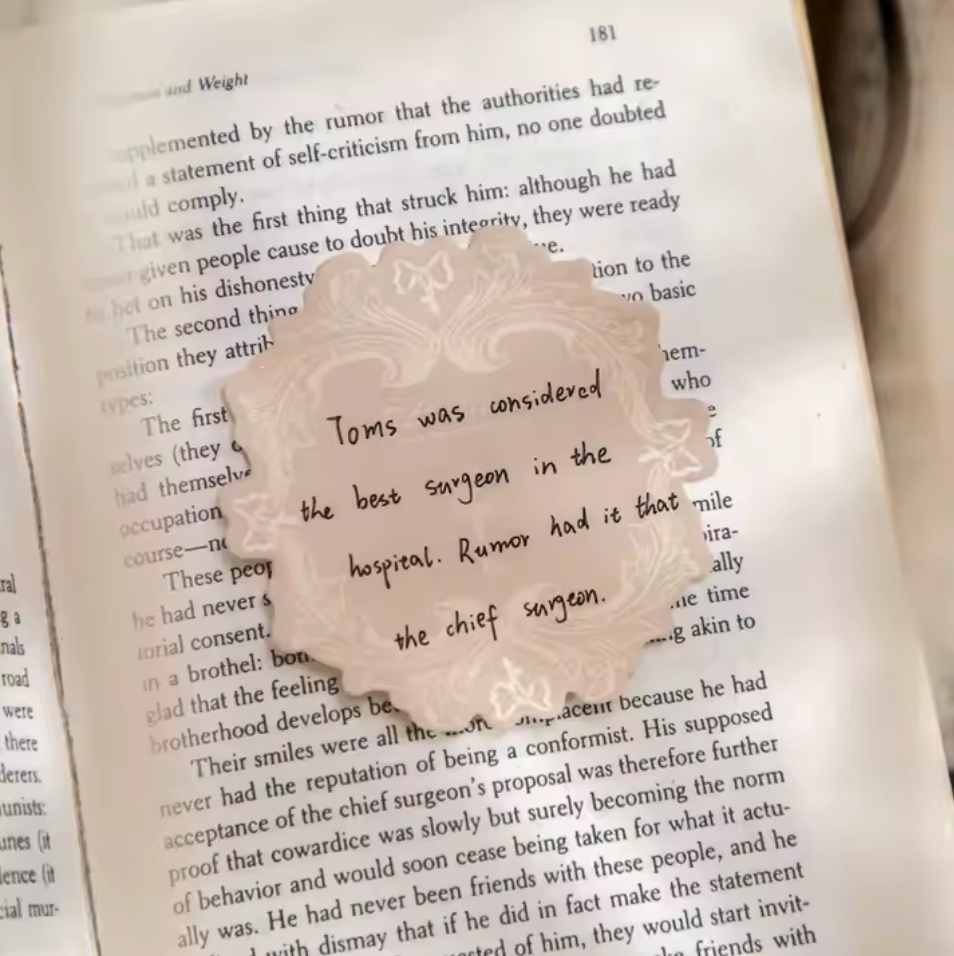 181
and Weight
plemented by the rumor that the authorities had re-
a statement of self-criticism from him, no one doubted
comply.
That was the first thing that struck him: although he had
given people cause to doubt his integrity, they were ready
to bet on his dishonesty
The second thing tion to the
position they attrib wo basic
types:
The first hem-
selves (they who
had themselve of
occupation
course—no mile
These peop pira-
he had never s ally
torial consent. time
in a brothel: both g akin to
glad that the feeling
brotherhood develops be
Their smiles were all the more complacent because he had
never had the reputation of being a conformist. His supposed
acceptance of the chief surgeon's proposal was therefore further
proof that cowardice was slowly but surely becoming the norm
of behavior and would soon cease being taken for what it actu-
ally was. He had never been friends with these people, and he
with dismay that if he did in fact make the statement
of him, they would start invit-
friends with
Toms was considered
the best surgeon in the
hospital. Rumor had it that
the chief surgeon.
ral
g a
nals
road
were
there
derers.
unists:
unes (it
lence (it
cial mur-